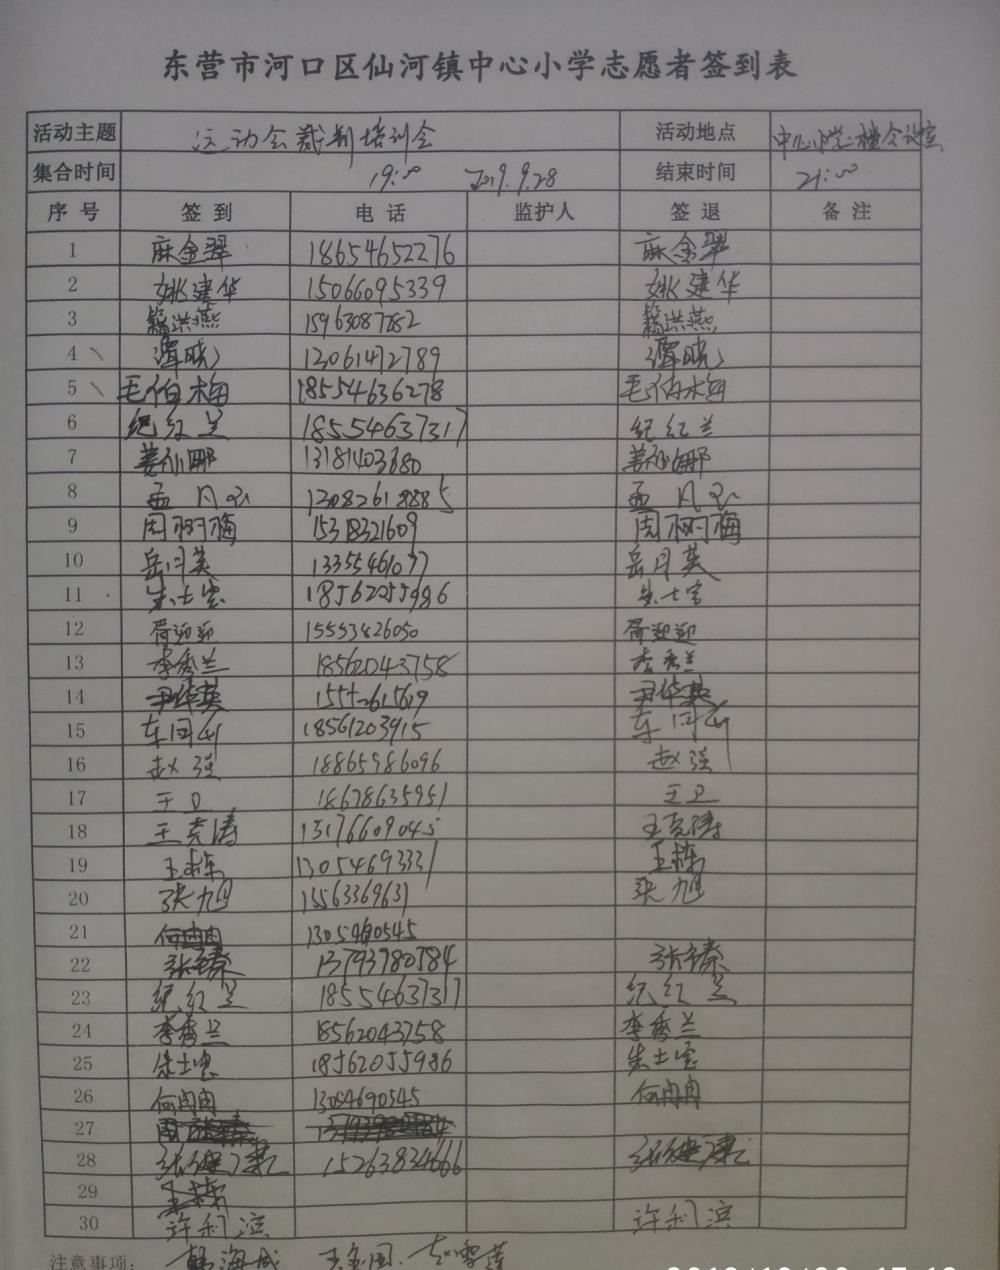 东营市河口区仙河镇中心小学志愿者签到表
活动主题 运动会裁判培训会 活动地点 中心小学二楼会议室
集合时间 19:00 2019.9.28 结束时间 21:00
序号 签到 电话 监护人 签退 备注
1 麻金翠 18654652276 麻金翠
2 姚建华 15066095339 姚建华
3 籍洪燕 15963087782 籍洪燕
4 谭晓 13061472789 谭晓
5 毛伯梅 18554636278 毛伯梅
6 纪红兰 18554637317 纪红兰
7 姜仙娜 13181403680 姜仙娜
8 孟凡 13082618885 孟凡
9 周树梅 15318321609 周树梅
10 岳月英 13355461077 岳月英
11 朱士宝 18562055986 朱士宝
12 胥迎迎 15553426050 胥迎迎
13 李秀兰 18562043758 李秀兰
14 尹华英 尹华英
15 车同利 18561203915 车同利
16 赵强 18865986096 赵强
17 王卫 18678635951 王卫
18 王克涛 13176609045 王克涛
19 王栋 13054693331 王栋
20 张旭 15563369631 张旭
21 何冉冉
22 张臻 13793780784 张臻
23 纪红兰 18554637317 纪红兰
24 李秀兰 18562043758 李秀兰
25 朱士宝 18562055986 朱士宝
26 何冉冉 13054690545 何冉冉
27
28 张健康 15263834666 张健康
29
30 许利滨 许利滨
注意事项： 韩海成